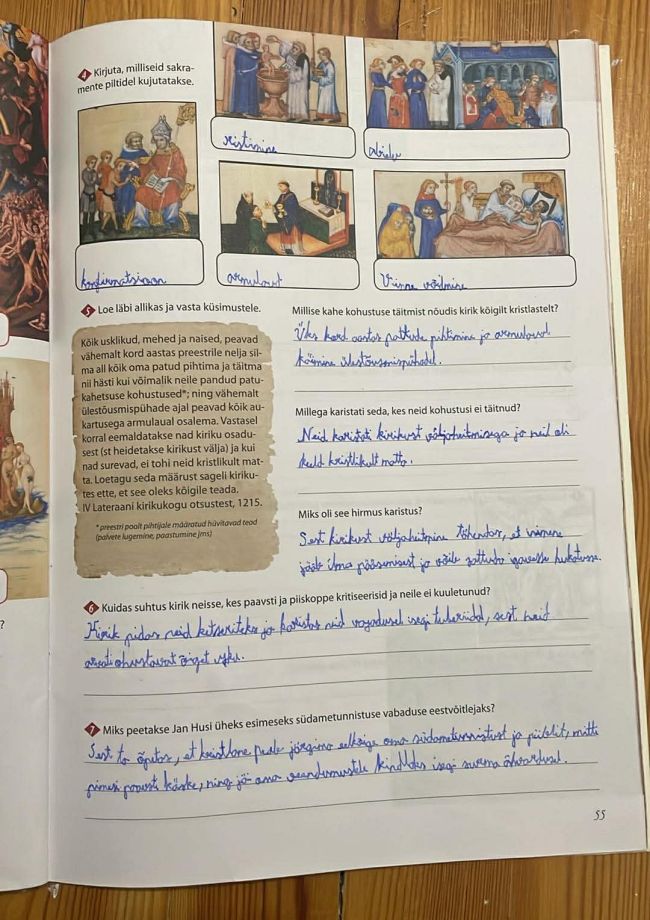 4 Kirjuta, milliseid sakra-
mente piltidel kujutatakse.
ristimine
abielu
konfirmatsioon
armulaud
Viimne võidmine
5 Loe läbi allikas ja vasta küsimustele.
Kõik usklikud, mehed ja naised, peavad
vähemalt kord aastas preestrile nelja sil-
ma all kõik oma patud pihtima ja täitma
nii hästi kui võimalik neile pandud patu-
kahetsuse kohustused*; ning vähemalt
ülestõusmispühade ajal peavad kõik au-
kartusega armulaual osalema. Vastasel
korral eemaldatakse nad kiriku osadu-
sest (st heidetakse kirikust välja) ja kui
nad surevad, ei tohi neid kristlikult mat-
ta. Loetagu seda määrust sageli kiriku-
tes ette, et see oleks kõigile teada.
IV Lateraani kirikukogu otsustest, 1215.
* preestri poolt pihtijale määratud hüvitavad teod
(palvete lugemine, paastumine jms)
Millise kahe kohustuse täitmist nõudis kirik kõigilt kristlastelt?
Üks kord aastas pattude pihtimine ja armulaual
käimine ülestõusmispühadel.
Millega karistati seda, kes neid kohustusi ei täitnud?
Neid karistati kirikust väljaheitmisega ja neil oli
keeld kristlikult matta.
Miks oli see hirmus karistus?
Sest kirikust väljaheitmine tähendas, et inimene
jääb ilma pääsemisest ja võib sattuda igavesse hukatusse.
6 Kuidas suhtus kirik neisse, kes paavsti ja piiskoppe kritiseerisid ja neile ei kuuletunud?
Kirik pidas neid ketseriteks ja karistas neid vajadusel isegi tuleriidal, sest neid
arvati ohustavat õiget usku.
?
7 Miks peetakse Jan Husi üheks esimeseks südametunnistuse vabaduse eestvõitlejaks?
Sest ta õpetas, et kristlane peab järgima eelkõige oma südametunnistust ja piiblit, mitte
pimesi paavsti käske, ning jäi oma veendumustele kindlaks isegi surma ähvardusel.
55